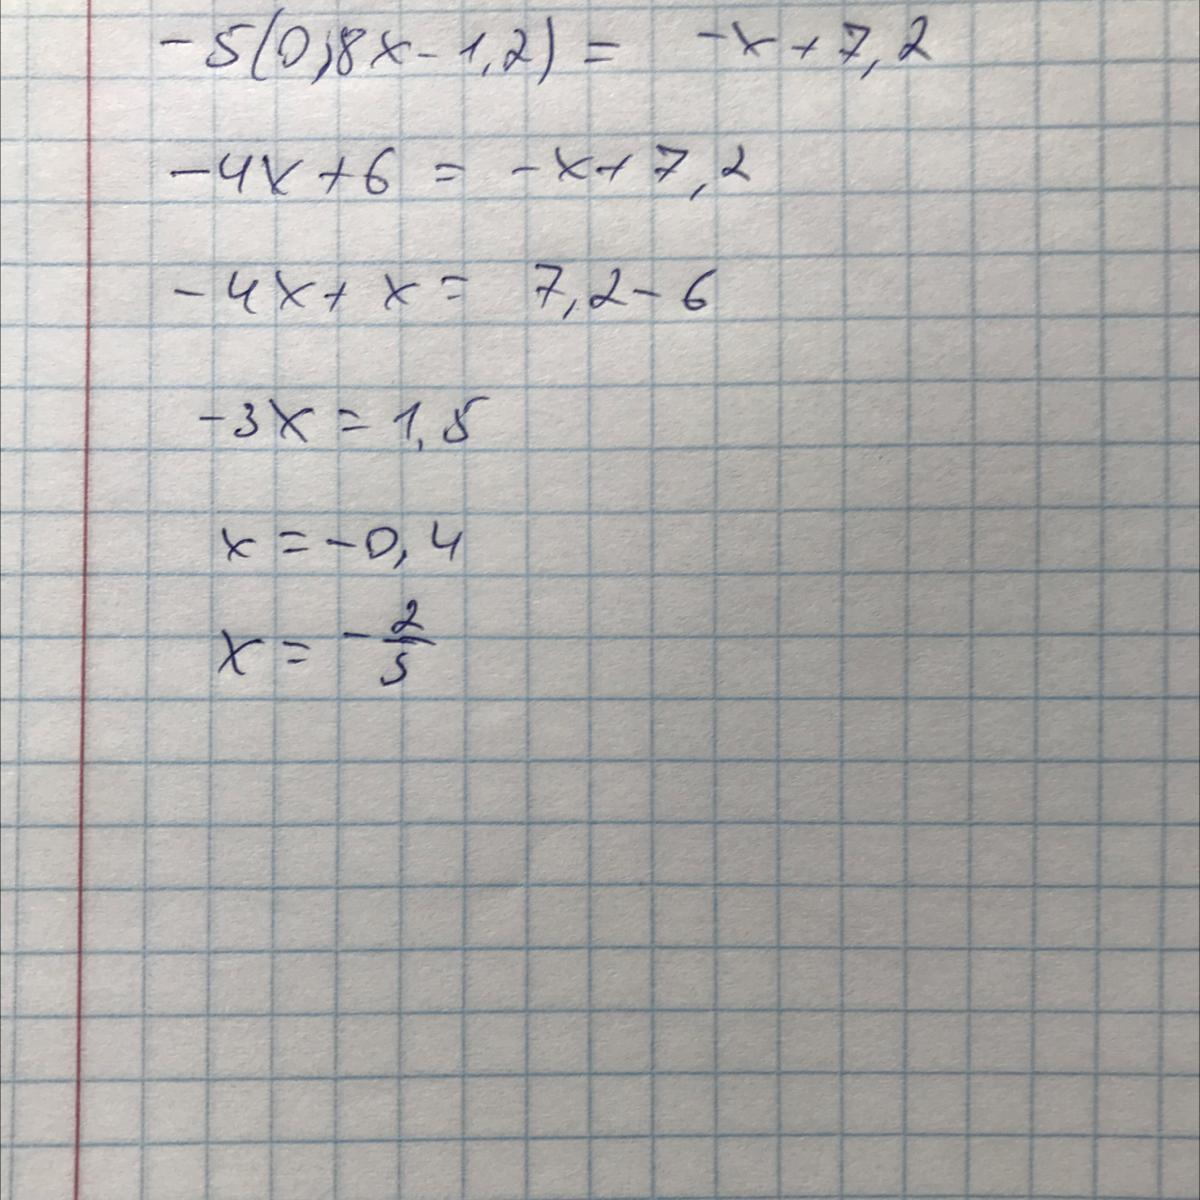 -5(0,8x-1,2) = -x+7,2
-4x+6 = -x+7,2
-4x+x = 7,2-6
-3x = 1,5
x = -0,4
x = -2/5